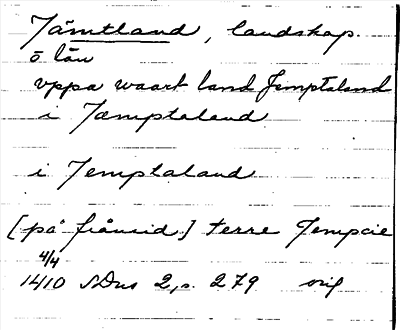 Jämtland, landskap
o län
vppa waart land Jemptaland
i Jæmptaland
i Jemptaland
[på frånsid.] terre Jempcie
4/4
1410 SDns 2, s. 279 orig